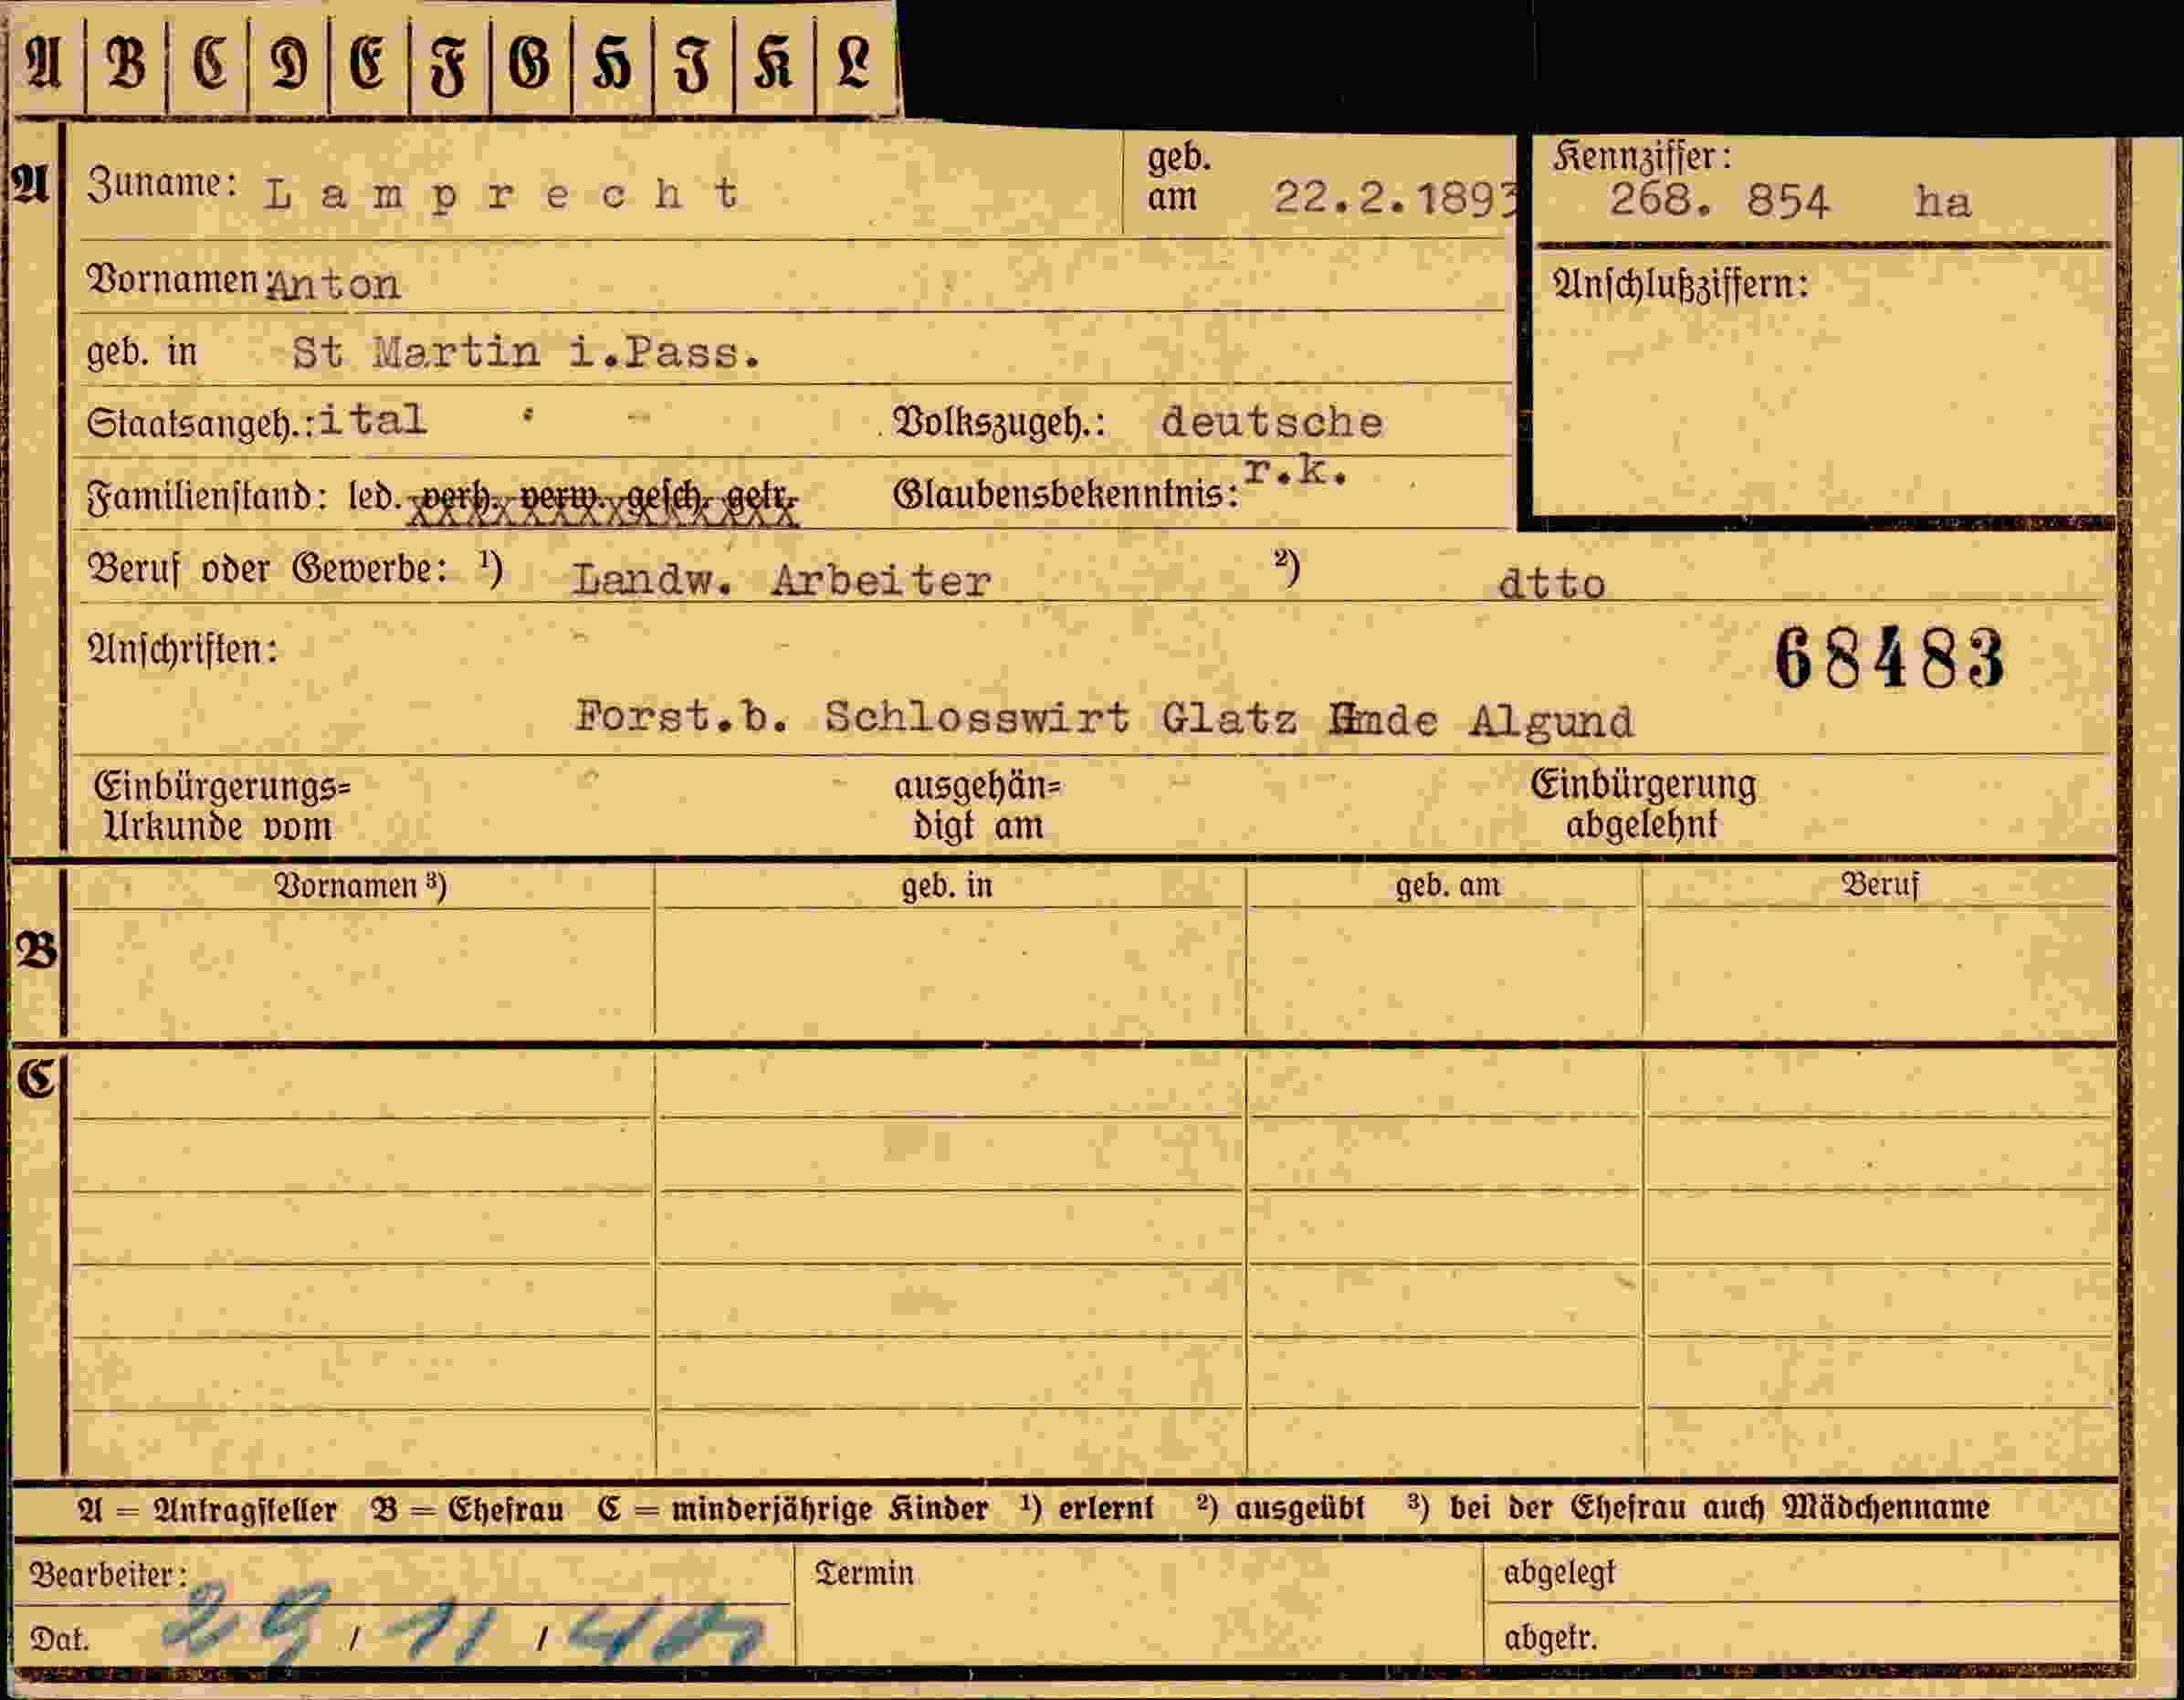 A B C D E F G H I K L
A Zuname: Lamprecht geb. am 22.2.1893 Kennziffer: 268. 854 ha
Vornamen: Anton
Anschlußziffern:
geb. in St Martin i.Pass.
Staatsangeh.: ital Volkszugeh.: deutsche
Familienstand: led. verh. verw. gesch. getr. Glaubensbekenntnis: r.k.
Beruf oder Gewerbe: ¹) Landw. Arbeiter ²) dtto
Anschriften: 68483
Forst.b. Schlosswirt Glatz Gmde Algund
Einbürgerungs= ausgehän= Einbürgerung
Urkunde vom digt am abgelehnt
Vornamen ³) geb. in geb. am Beruf
B
C
A = Antragsteller B = Ehefrau C = minderjährige Kinder ¹) erlernt ²) ausgeübt ³) bei der Ehefrau auch Mädchenname
Bearbeiter: Termin abgelegt
Dat. 29 / 11 / 40 abgetr.